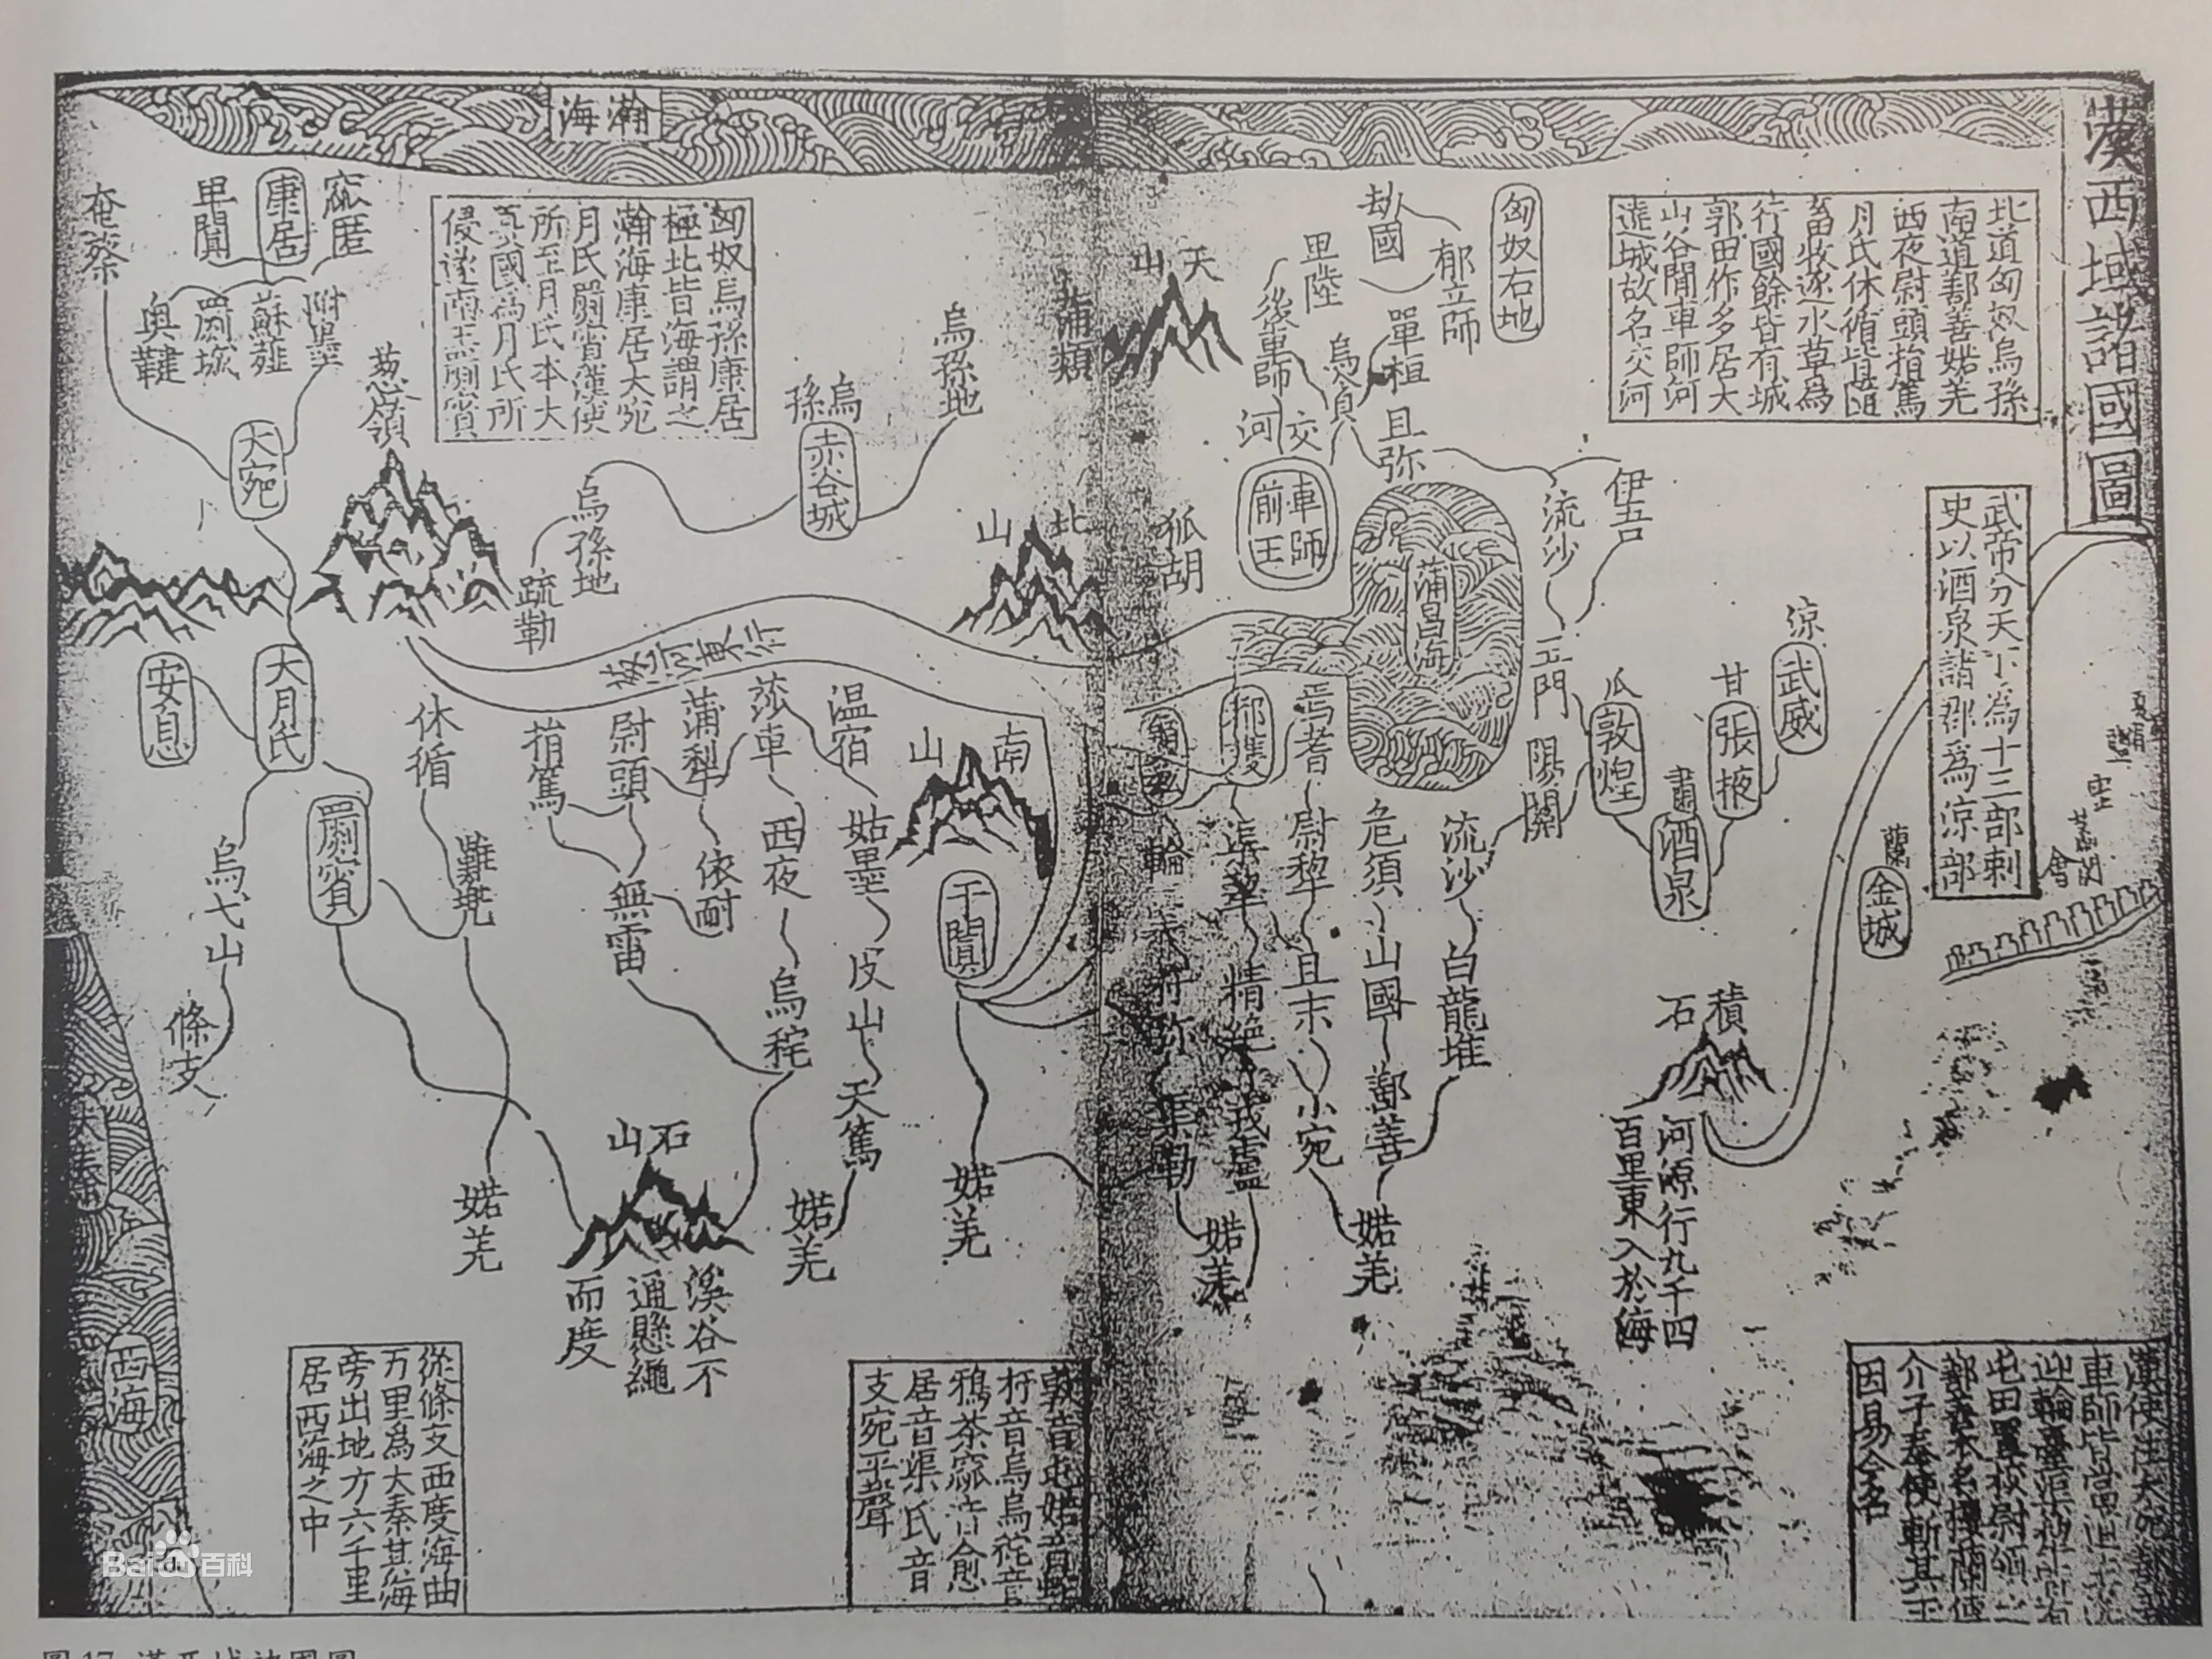 漢西域諸國圖
北道匈奴烏孫
南道鄯善婼羌
西夜尉頭捐篤
月氏休循皆隨
畜牧逐水草為
行國餘皆有城
郭田作多居大
山谷間車師河
遶城故名交河
匈奴右地
劫國
郁立師
單桓
卑陸
後車師
烏貪
且弥
天山
交河
車師前王
狐胡
蒲類
蒲昌海
伊吾
流沙
玉門
陽關
武帝分天下為十三部刺
史以酒泉諸郡爲涼部
涼
武威
甘
張掖
肅
酒泉
瓜
敦煌
蘭
金城
會
積石
河源行九千四
百里東入於海
流沙
白龍堆
危須
山國
鄯善
婼羌
焉耆
尉犂
且末
小宛
渠犂
精絶
戎盧
婼羌
輪
扜弥
渠勒
瀚海
匈奴烏孫康居
極北皆海謂之
瀚海康居大宛
月氏罽賓漢使
所至月氏本大
國為月氏所
侵遂南王罽賓
烏孫地
烏孫
赤谷城
烏孫地
疏勒
北山
葱嶺
窳匿
康居
卑闐
奄蔡
附墨
蘇薤
罽城
奥鞬
大宛
大月氏
安息
罽賓
烏弋山
條支
休循
難兠
婼羌
河東行
捐篤
尉頭
無雷
蒲犂
依耐
莎車
西夜
烏秅
温宿
姑墨
皮山
天篤
婼羌
南山
于闐
婼羌
石山
溪谷不
通懸繩
而度
西海
從條支西度海曲
万里為大秦其海
旁出地方六千里
居西海之中
扜音烏烏秅音
鴉茶窳音愈
居音渠氏音
支宛平聲
漢使往大宛
車師皆當
迎輪臺渠犂
屯田置校尉領
鄯善本名樓蘭傅
介子奉使斬其王
因易今名
Baidu百科
圖17 漢西域諸國圖